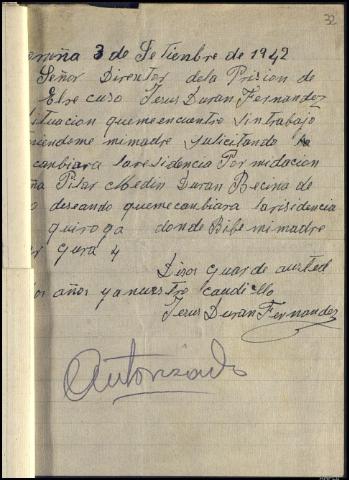 32
oruña 3 de Setienbre de 1942
Señor Direntor dela Prision de
El recuso Jesus Duran Fernandez
ituacion quemeencuentro sintrabajo
iendome mimadre sulicitando
cambiara laresidencia Por midacion
ña Pilar Medin Duran Becina de
o deseando quemecanbiara larisidencia
quiroga donde Bibe mimadre
Gura 4
Dios guarde austed
os años yanuestro caudillo
Jesus Duran Fernandez
Autorizado